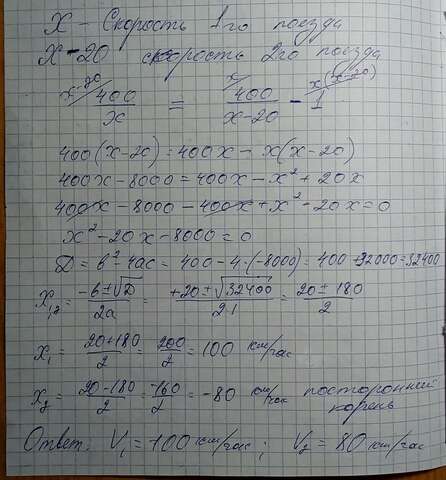 X - Скорость 1го поезда
X - 20 скорость 2го поезда
x-20/ 400/x = x/ 400/(x-20) - x(x-20)/ 1
400(x-20) = 400x - x(x-20)
400x - 8000 = 400x - x² + 20x
400x - 8000 - 400x + x² - 20x = 0
x² - 20x - 8000 = 0
D = b² - 4ac = 400 - 4·(-8000) = 400 + 32000 = 32400
X₁,₂ = (-b ± √D)/2a = (+20 ± √32400)/2·1 = (20 ± 180)/2
x₁ = (20+180)/2 = 200/2 = 100 км/час
x₂ = (20-180)/2 = -160/2 = -80 км/час посторонний корень
Ответ: V₁ = 100 км/час; V₂ = 80 км/час